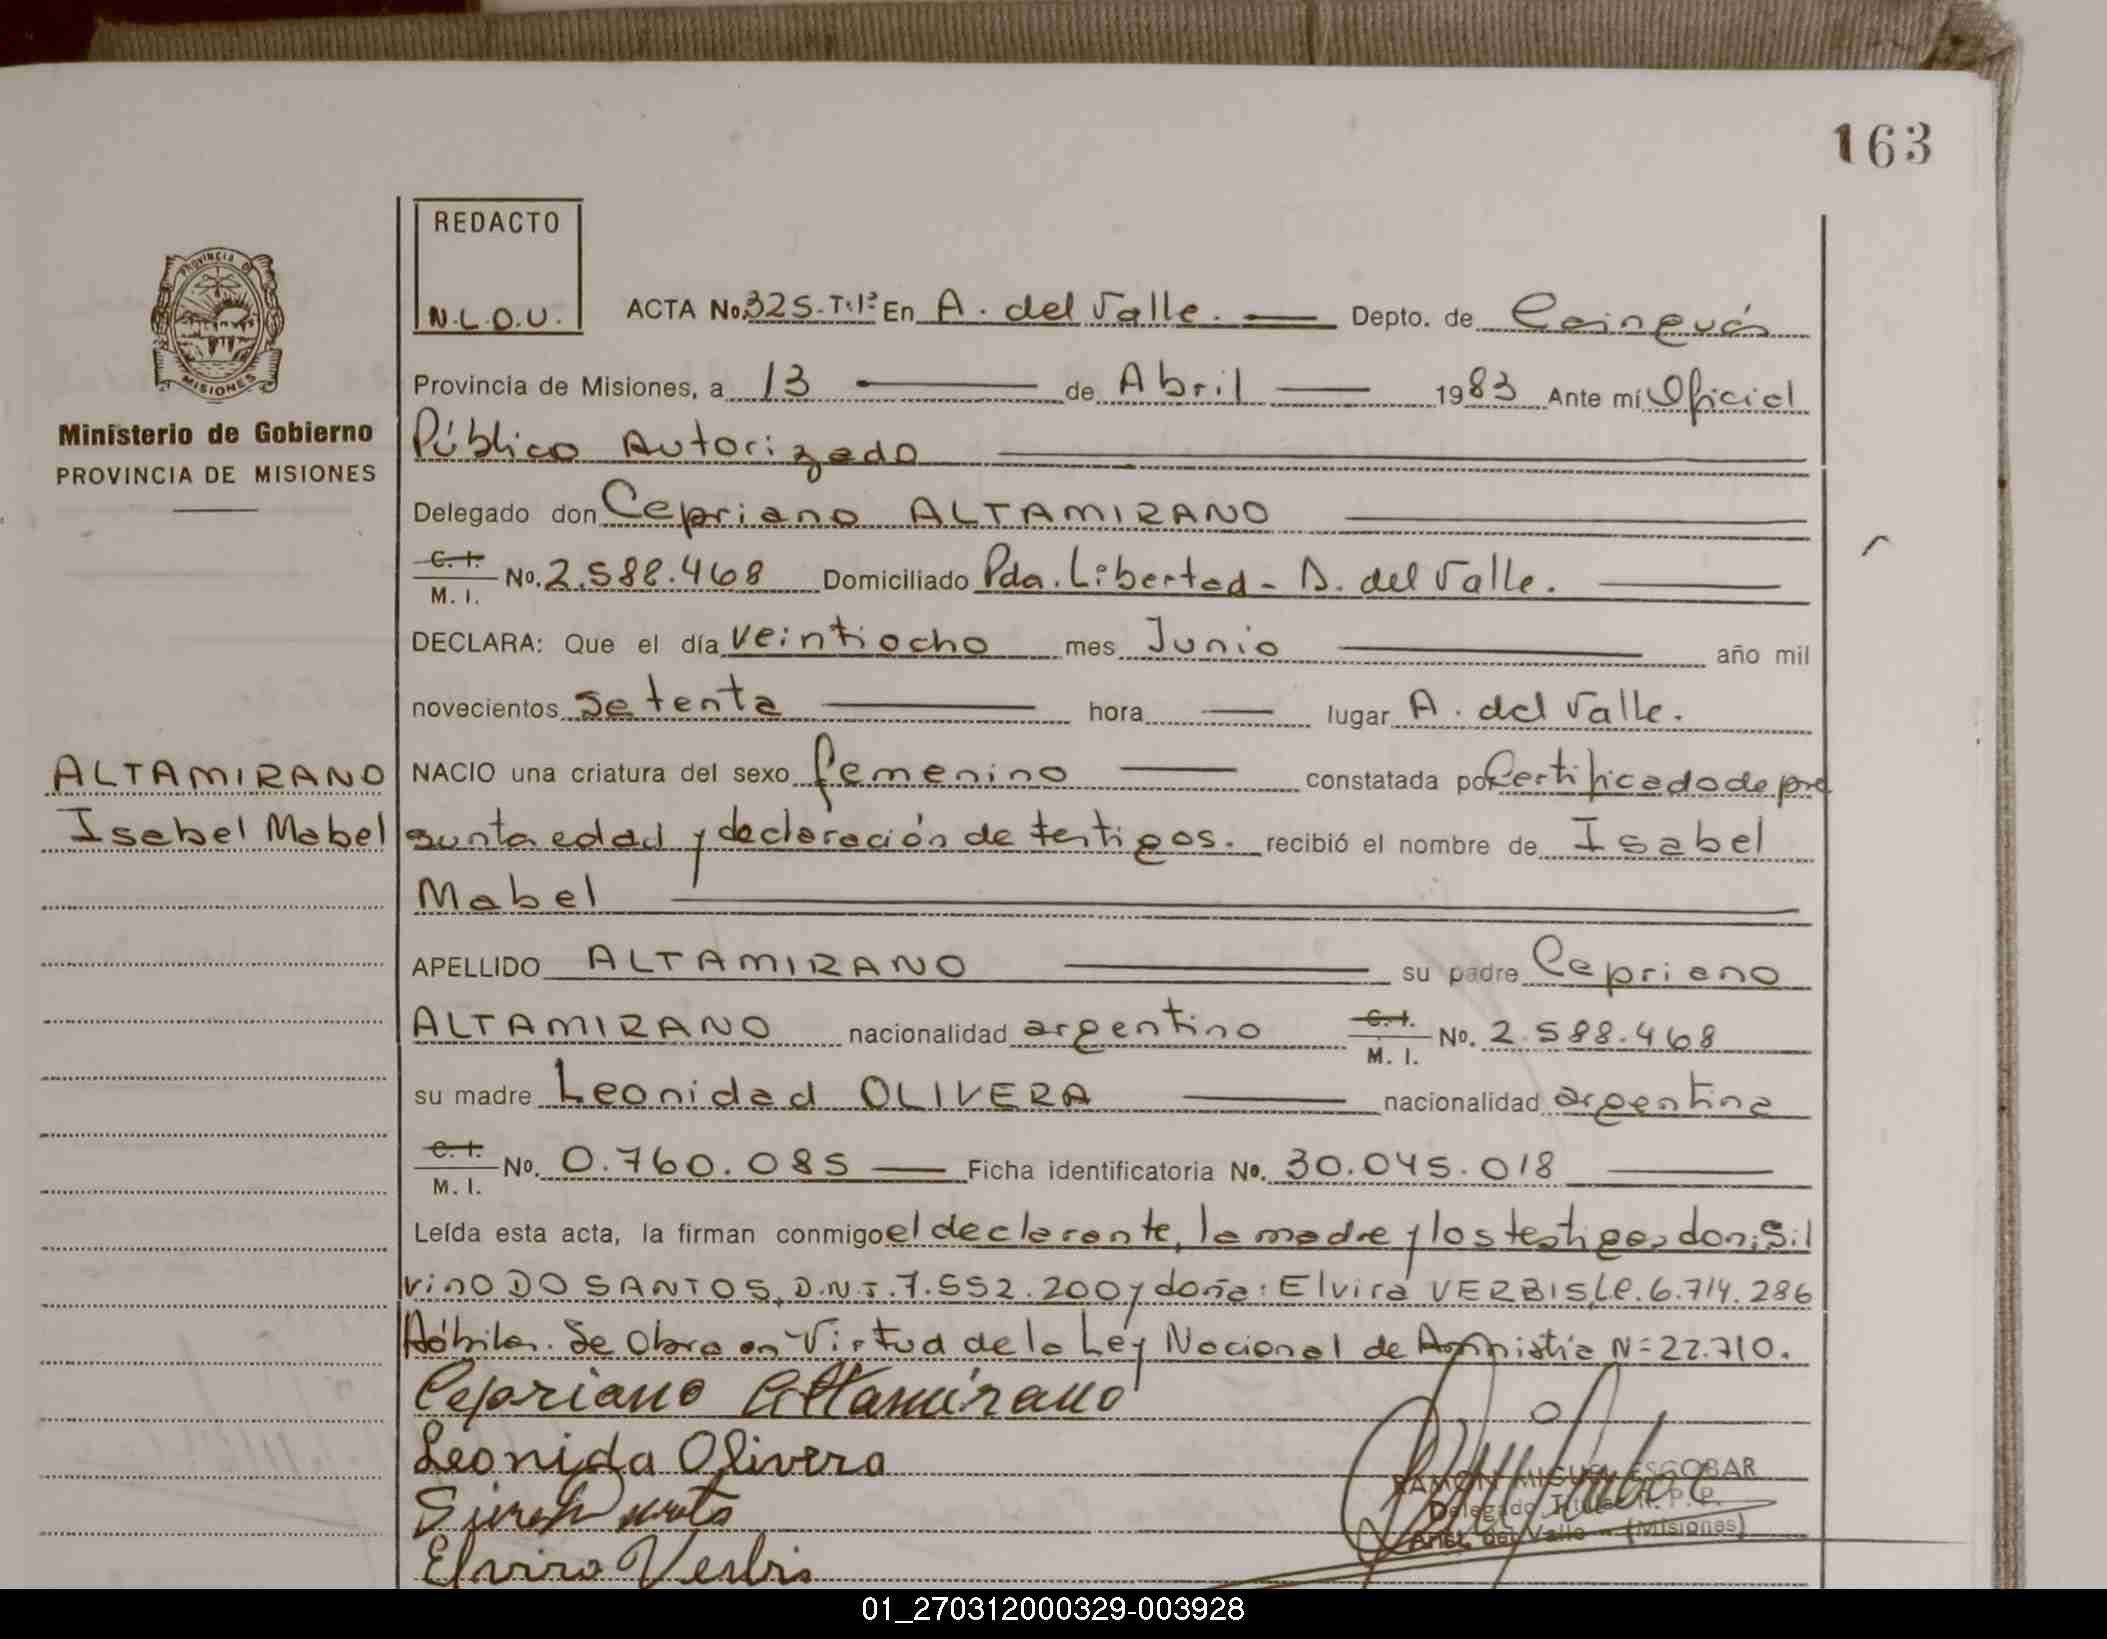 163
REDACTO
N.L.O.U.
PROVINCIA DE
MISIONES
Ministerio de Gobierno
PROVINCIA DE MISIONES
ACTA No. 325-T:1º En A. del Valle. Depto. de Cainguás
Provincia de Misiones, a 13 de Abril 1983 Ante mí Oficial
Público Autorizado
Delegado don Cepriano ALTAMIRANO
C. I. M. I. No. 2.588.468 Domiciliado Pda. Libertad - A. del Valle.
DECLARA: Que el día veintiocho mes Junio año mil
novecientos setenta hora lugar A. del Valle.
ALTAMIRANO
Isabel Mabel
NACIO una criatura del sexo femenino constatada por Certificado de pre
sunta edad y declaración de testigos. recibió el nombre de Isabel
Mabel
APELLIDO ALTAMIRANO su padre Cepriano
ALTAMIRANO nacionalidad argentino C. I. M. I. No. 2.588.468
su madre Leonidad OLIVERA nacionalidad argentina
C. I. M. I. No. 0.760.085 Ficha identificatoria No. 30.045.018
Leída esta acta, la firman conmigo el declarante, la madre y los testigos don: Sil
vino DO SANTOS, D.N.I. 7.552.200 y doña: Elvira VERBIS, L.C. 6.714.286
Hábiles. Se Obra en Virtud de la Ley Nacional de Amnistía N=22.710.
Cepriano Altamirano
Leonida Olivera
Elvira Verbis
RAMON MIGUEL ESCOBAR
Delegado Titular R. P. P.
Arist. del Valle - (Misiones)
01_270312000329-003928